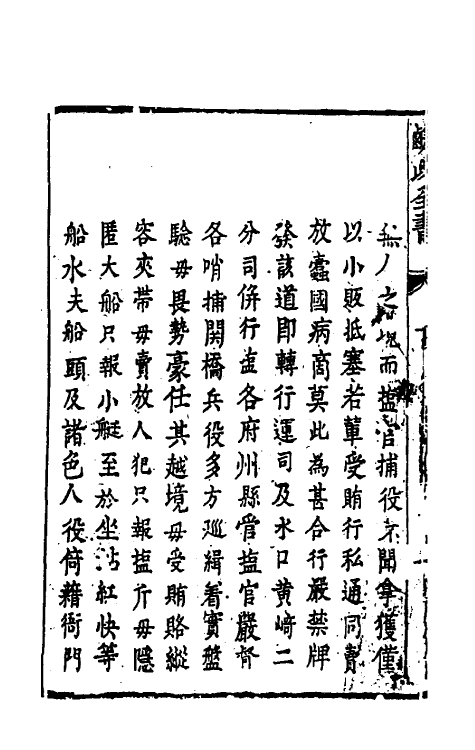 鹺政全書
而塩官捕役未聞拿獲僅
以小販抵塞若輩受賄行私通同賣
放蠹國病商莫此為甚合行嚴禁牌
發該道即轉行運司及水口黄崎二
分司併行盐各府州縣管塩官嚴督
各哨捕関橋兵役多方廵緝着實盤
驗毋畏勢豪任其越境毋受賄賂縱
容夾帶毋賣放人犯只報塩斤毋隱
匿大船只報小艇至於坐站紅快等
船水夫船頭及諸色人役倚藉衙門